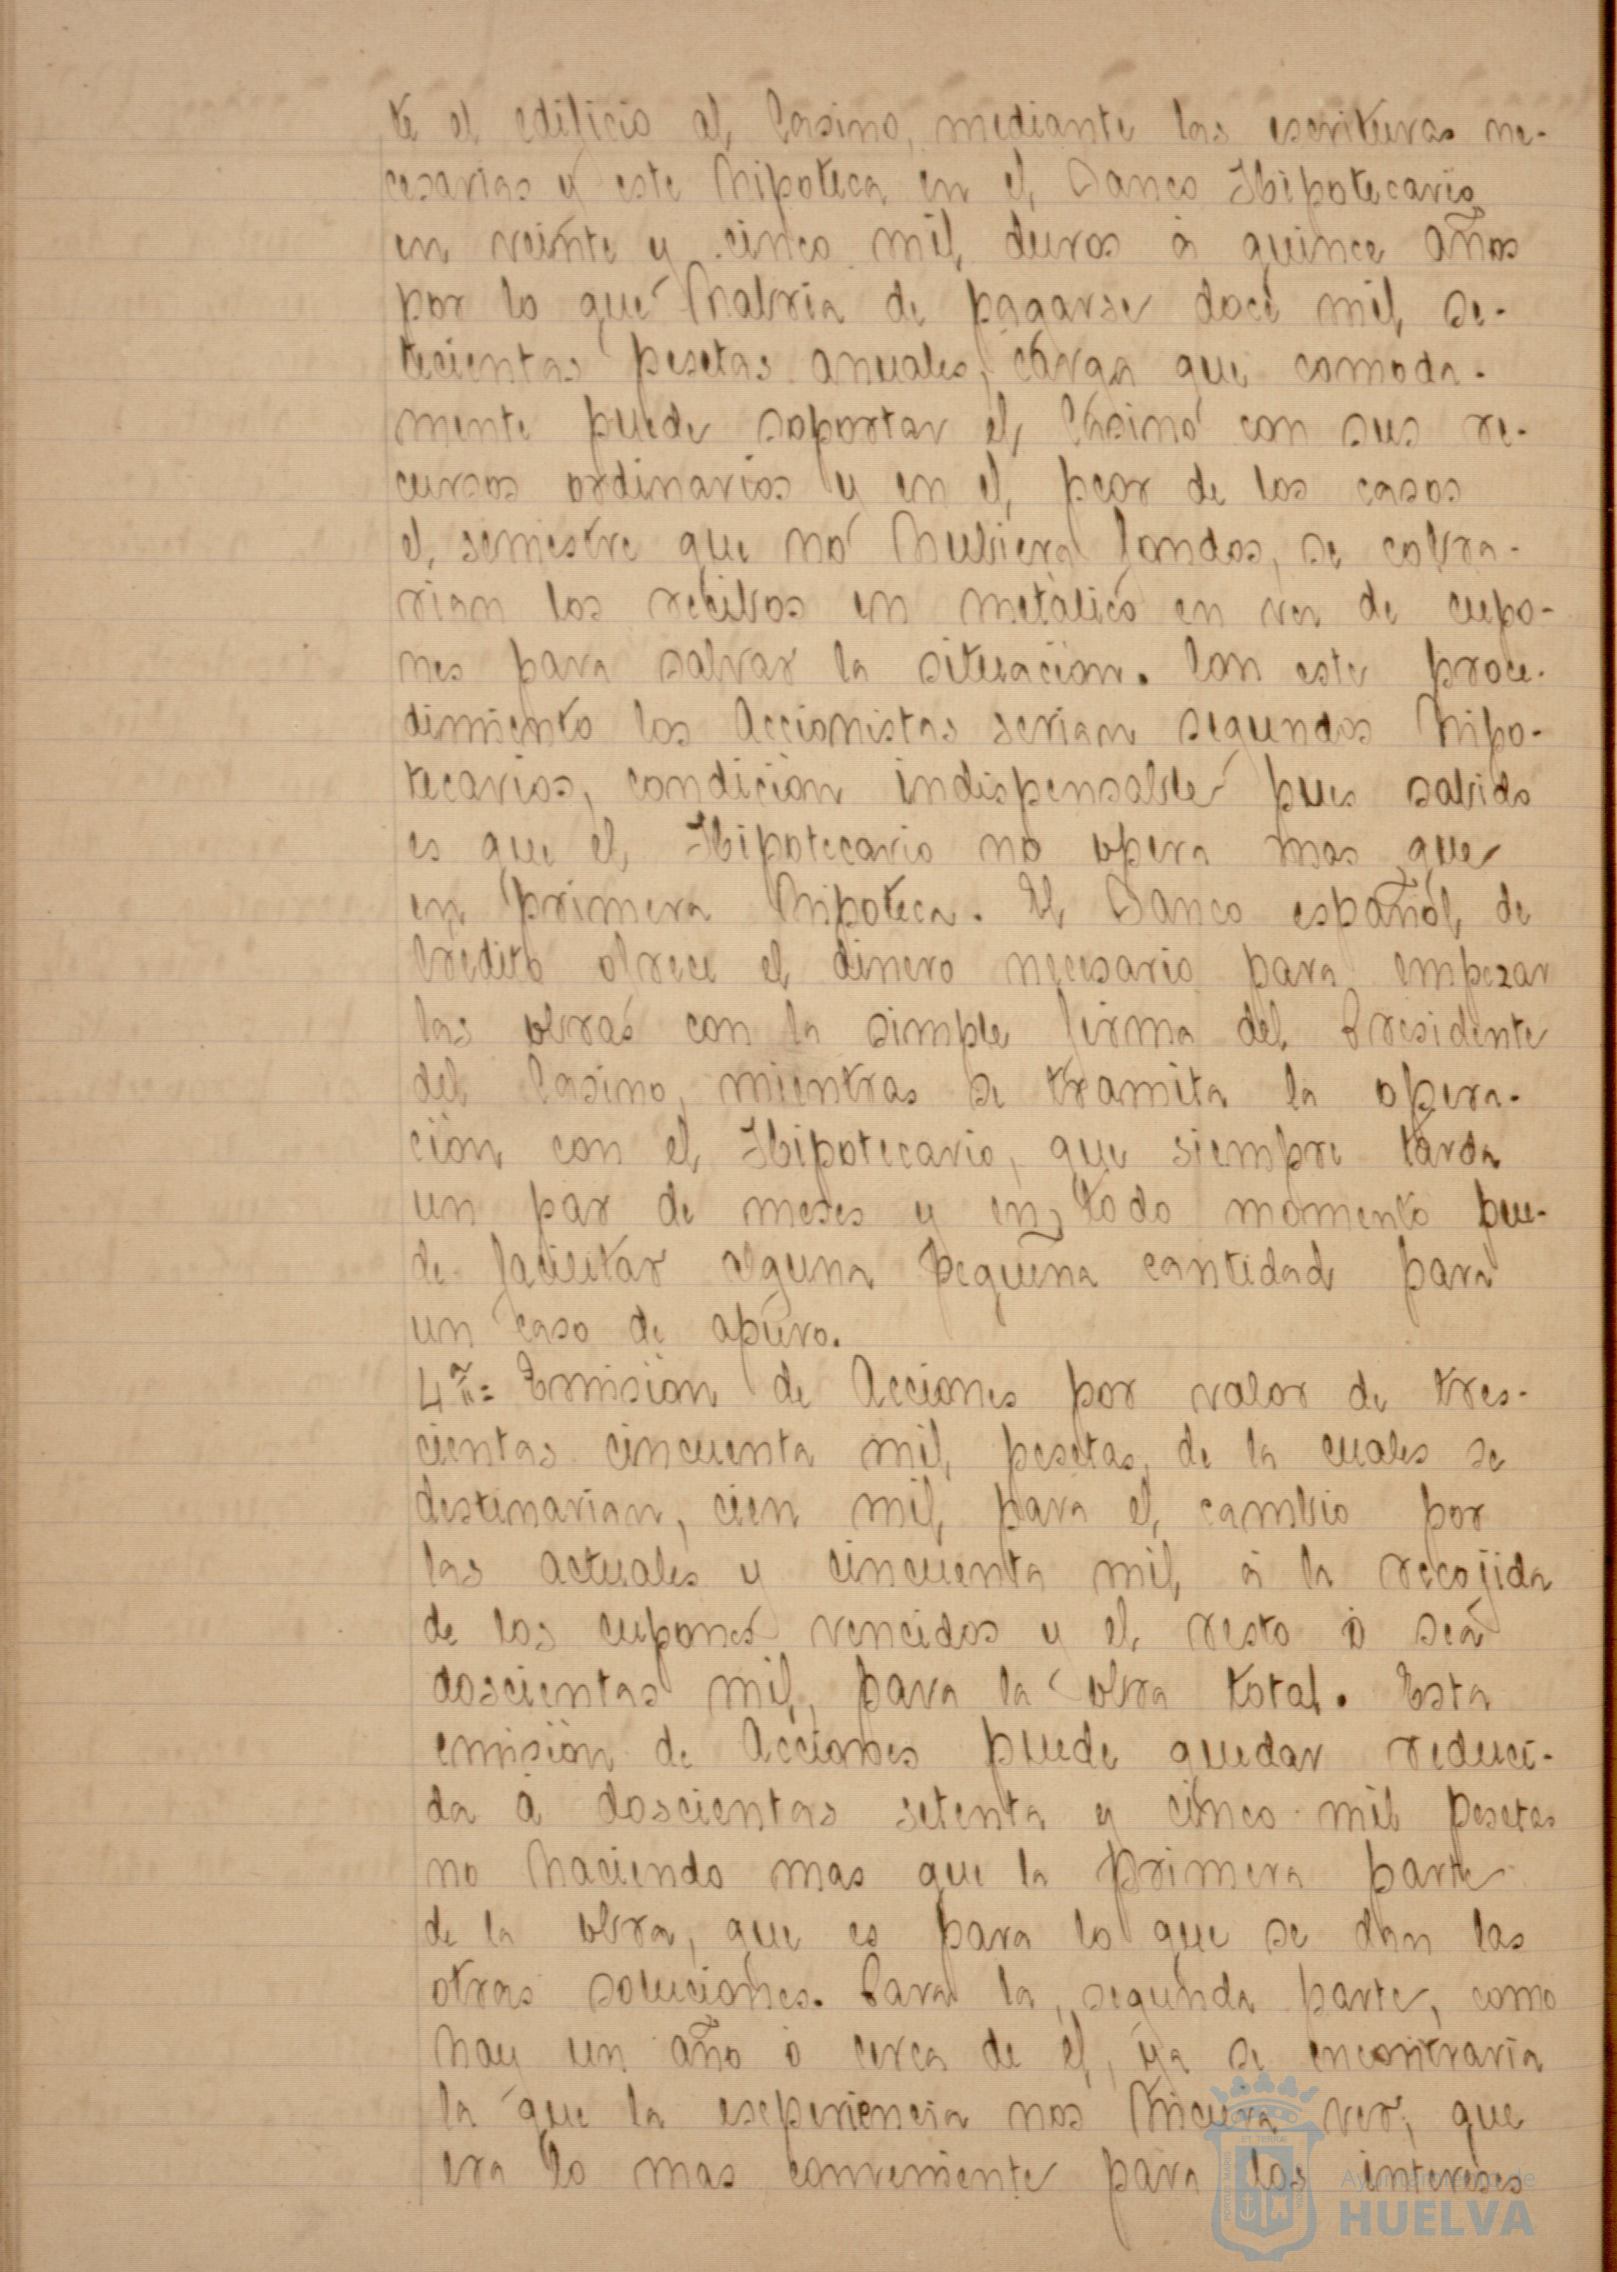 te el edificio al Casino, mediante las escrituras ne-
cesarias y este hipoteca en el Banco Hipotecario
en veinte y cinco mil duros á quince años
por lo que habria de pagarse doce mil se-
tecientas pesetas anuales, carga que comoda-
mente puede soportar el Casino con sus re-
cursos ordinarios y en el peor de los casos
el semestre que no hubiera fondos, se cobra-
rian los recibos en metálico en vez de cupo-
nes para salvar la situacion. Con este proce-
dimiento los Accionistas serian segundos hipo-
tecarios, condicion indispensable pues sabido
es que el Hipotecario no opera mas que
en primera hipoteca. El Banco español de
Credito ofrece el dinero necesario para empezar
las obras con la simple firma del Presidente
del Casino, mientras se tramita la opera-
cion con el Hipotecario, que siempre tarda
un par de meses y en todo momento pue-
de facilitar alguna pequeña cantidad para
un caso de apuro.
4ª = Emision de Acciones por valor de tres-
cientas cincuenta mil pesetas, de la cuales se
destinarian, cien mil para el cambio por
las actuales y cincuenta mil á la recojida
de los cupones vencidos y el resto ó sea
doscientas mil, para la obra total. Esta
emision de Acciones puede quedar reduci-
da á doscientas setenta y cinco mil pesetas
no haciendo mas que la primera parte
de la obra, que es para lo que se dan las
otras soluciones. Para la segunda parte, como
hay un año ó cerca de él, ya se encontraria
la que la esperiencia nos hiciera ver, que
era lo mas conveniente para los intereses
Ayuntamiento de
HUELVA